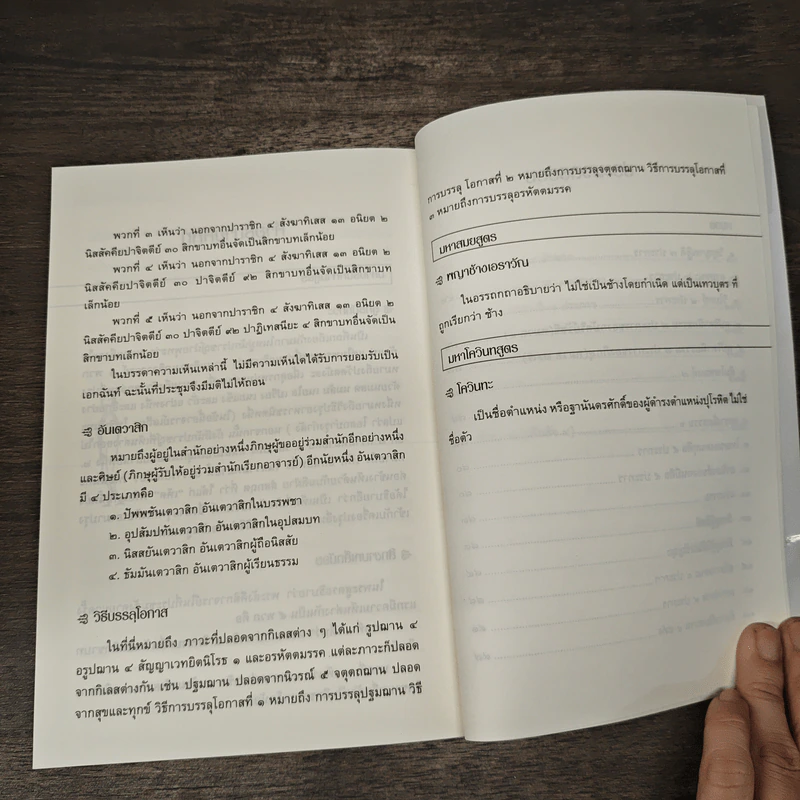 พวกที่ ๓ เห็นว่า นอกจากปาราชิก ๔ สังฆาทิเสส ๑๓ อนิยต ๒
นิสสัคคียปาจิตตีย์ ๓๐ สิกขาบทอื่นจัดเป็นสิกขาบทเล็กน้อย
พวกที่ ๔ เห็นว่า นอกจากปาราชิก ๔ สังฆาทิเสส ๑๓ อนิยต ๒
นิสสัคคียปาจิตตีย์ ๓๐ ปาจิตตีย์ ๙๒ สิกขาบทอื่นจัดเป็นสิกขาบท
เล็กน้อย
พวกที่ ๕ เห็นว่า นอกจากปาราชิก ๔ สังฆาทิเสส ๑๓ อนิยต ๒
นิสสัคคียปาจิตตีย์ ๓๐ ปาจิตตีย์ ๙๒ ปาฏิเทสนียะ ๔ สิกขาบทอื่นจัดเป็น
สิกขาบทเล็กน้อย
ในบรรดาความเห็นเหล่านี้ ไม่มีความเห็นใดได้รับการยอมรับเป็น
เอกฉันท์ ฉะนั้นที่ประชุมจึงมีมติไม่ให้ถอน
อันเตวาสิก
หมายถึงผู้อยู่ในสำนักอย่างหนึ่งภิกษุผู้ขออยู่ร่วมสำนักอีกอย่างหนึ่ง
และศิษย์ (ภิกษุผู้รับให้อยู่ร่วมสำนักเรียกอาจารย์) อีกนัยหนึ่ง อันเตวาสิก
มี ๔ ประเภทคือ
๑. ปัพพชันเตวาสิก อันเตวาสิกในบรรพชา
๒. อุปสัมปทันเตวาสิก อันเตวาสิกในอุปสมบท
๓. นิสสยันเตวาสิก อันเตวาสิกผู้ถือนิสสัย
๔. ธัมมันเตวาสิก อันเตวาสิกผู้เรียนธรรม
วิธีบรรลุโอกาส
ในที่นี่หมายถึง ภาวะที่ปลอดจากกิเลสต่าง ๆ ได้แก่ รูปฌาน ๔
อรูปฌาน ๔ สัญญาเวทยิตนิโรธ ๑ และอรหัตตมรรค แต่ละภาวะก็ปลอด
จากกิเลสต่างกัน เช่น ปฐมฌาน ปลอดจากนิวรณ์ ๕ จตุตถฌาน ปลอด
จากสุขและทุกข์ วิธีการบรรลุโอกาสที่ ๑ หมายถึง การบรรลุปฐมฌาน วิธี
การบรรลุ โอกาสที่ ๒ หมายถึงการบรรลุจตุตถฌาน วิธีการบรรลุโอกาสที่
๓ หมายถึงการบรรลุอรหัตตมรรค
มหาสมยสูตร
พญาช้างเอราวัณ
ในอรรถกถาอธิบายว่า ไม่ใช่เป็นช้างโดยกำเนิด แต่เป็นเทวบุตร ที่
ถูกเรียกว่า ช้าง
มหาโควินทสูตร
โควินทะ
เป็นชื่อตำแหน่ง หรือฐานันดรศักดิ์ของผู้ดำรงตำแหน่งปุโรหิต ไม่ใช่
ชื่อตัว